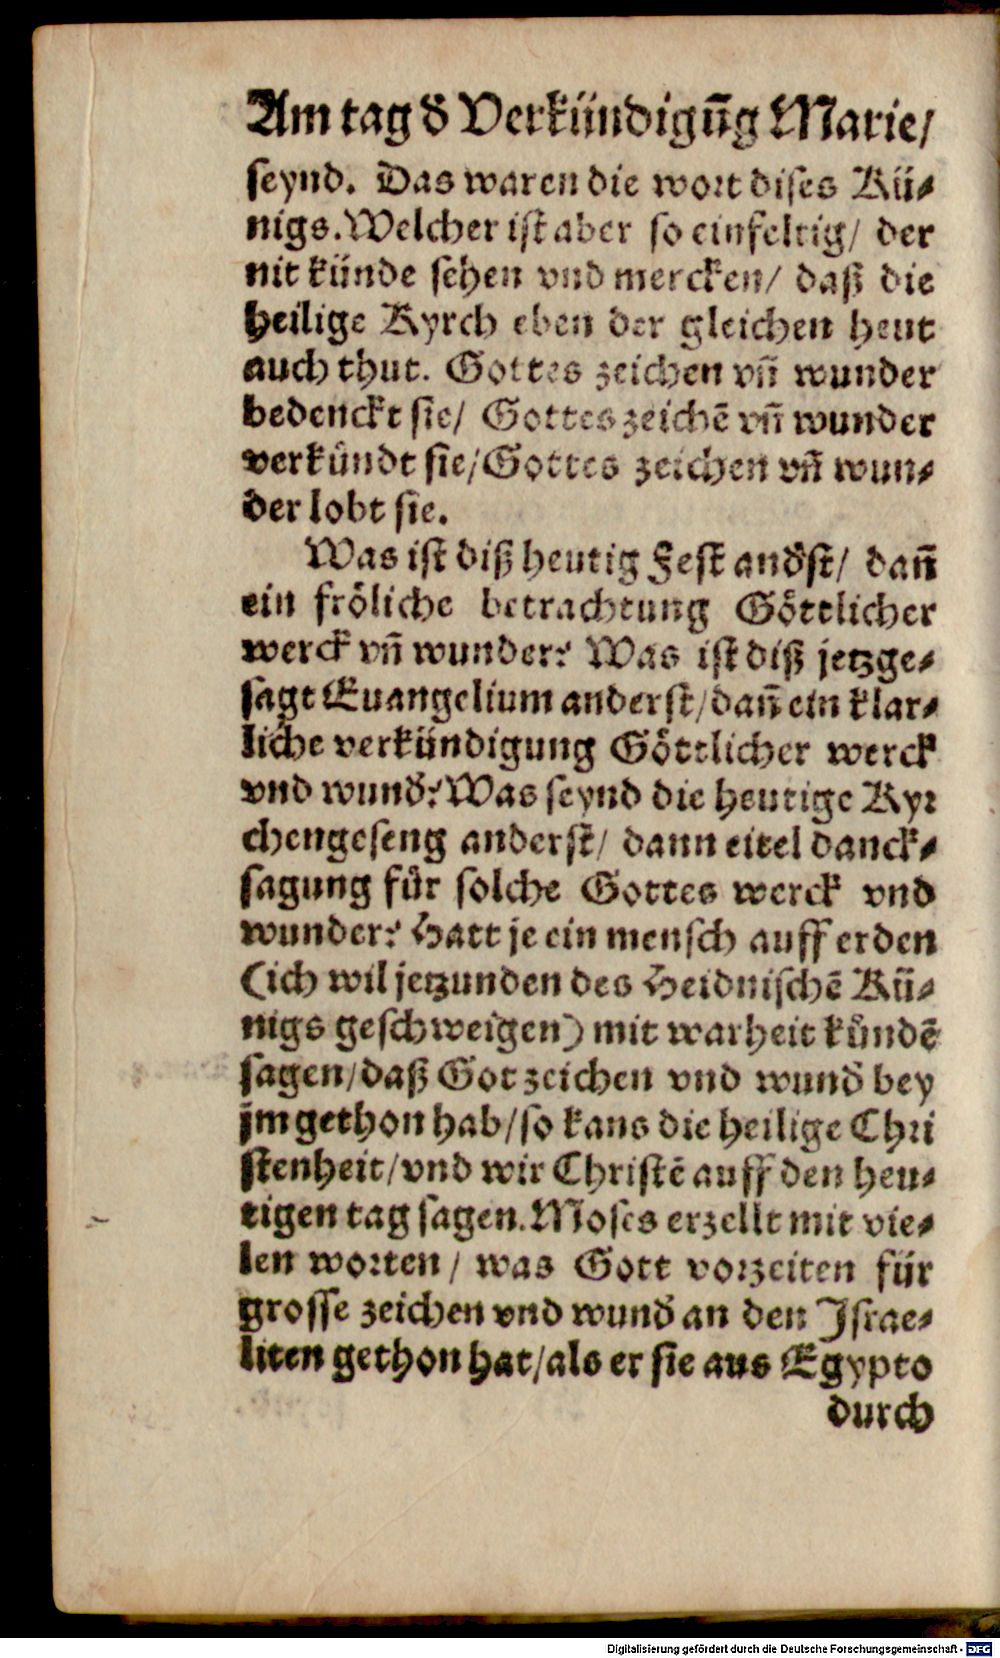 Am tag d̕ Verkündigūg Marie/
seynd. Das waren die wort dises Kü⸗
nigs. Welcher ist aber so einfeltig/ der
nit künde sehen vnd mercken/ daß die
heilige Kyrch eben der gleichen heut
auch thut. Gottes zeichen vñ wunder
bedenckt sie/ Gottes zeichē vñ wunder
verkündt sie/ Gottes zeichen vñ wun⸗
der lobt sie.
Was ist diß heutig Fest and̕st/ dañ
ein fröliche betrachtung Göttlicher
werck vñ wunder? Was ist diß jetzge⸗
sagt Euangelium anderst/ dañ ein klar⸗
liche verkündigung Göttlicher werck
vnd wund̕? Was seynd die heutige Kyr
chengeseng anderst/ dann eitel danck⸗
sagung für solche Gottes werck vnd
wunder? Hatt je ein mensch auff erden
(ich wil jetzunden des Heidnischē Kü⸗
nigs geschweigen) mit warheit kündē
sagen/ daß Got zeichen vnd wund̕ bey
jm gethon hab/ so kans die heilige Chri
stenheit/ vnd wir Christē auff den heu⸗
tigen tag sagen. Moses erzellt mit vie⸗
len worten/ was Gott vorzeiten für
grosse zeichen vnd wund̕ an den Israe⸗
liten gethon hat/ als er sie aus Egypto
durch
Digitalisierung gefördert durch die Deutsche Forschungsgemeinschaft - DFG